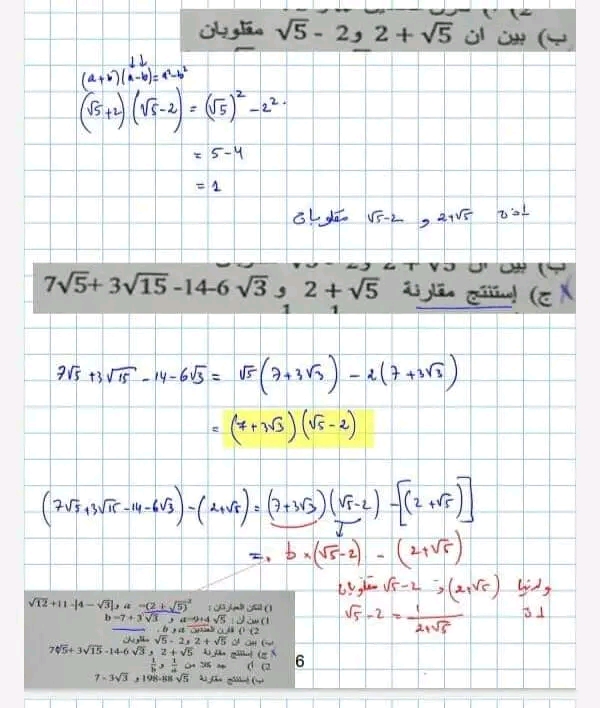 ب) بين ان 2 + √5 و √5 - 2 مقلوبان
(a+b)(a-b)=a²-b²
(√5+2)(√5-2) = (√5)² - 2².
= 5-4
= 1
اذن 2+√5 و √5-2 مقلوبان
ج) إستنتج مقارنة 2 + √5 و 7√5+ 3√15 -14-6 √3
7√5 +3√15 -14-6√3 = √5(7+3√3) - 2(7+3√3)
= (7+3√3)(√5-2)
(7√5+3√15-14-6√3)-(2+√5) = (7+3√3)(√5-2) -[(2+√5)]
= b×(√5-2) - (2+√5)
ولدينا (2+√5) و √5-2 مقلوبان
اذن √5-2 = 1/(2+√5)
1) لتكن العبارتان : a =(2 + √5)² و √12 +11 -|4 - √3|
1) بين أن : a=9+4 √5 و b=7+3 √3
2) أ) قارن العددين a و b.
ب) بين ان 2 + √5 و √5 - 2 مقلوبان
ج) إستنتج مقارنة 2 + √5 و 7√5+ 3√15 -14-6 √3
2) أ) جد كلا من 1/a و 1/b
ب) إستنتج مقارنة 198-88 √5 و 7 - 3√3
6